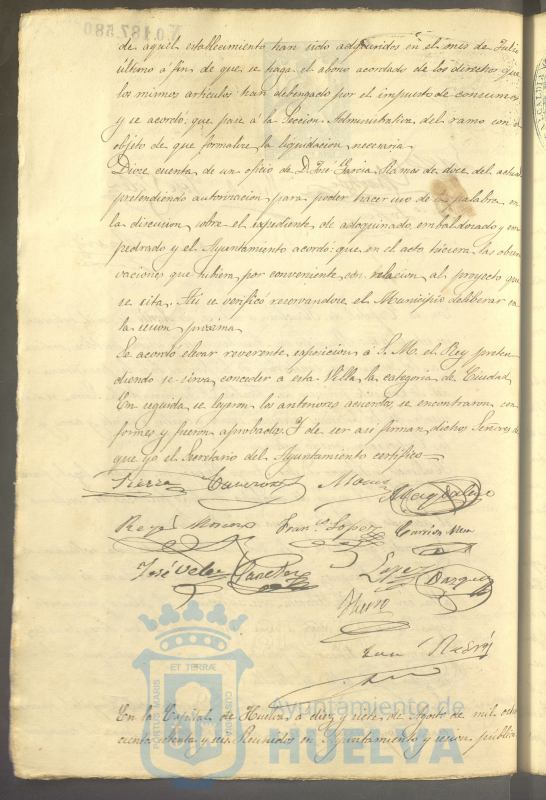 N.0.187.580
de aquel establecimiento han sido adquiridos en el mes de Julio
último á fin de que se haga el abono acordado de los derechos que
los mismos artículos han debengado por el impuesto de consumos
y se acordó: que pase á la Seccion Administrativa del ramo con el
objeto de que formalice la liquidacion necesaria.
Diose cuenta de un oficio de D. José García Ramos de doce del actual
pretendiendo autorizacion para poder hacer uso de la palabra en
la discusion sobre el expediente de adoquinado, embaldosado y em
pedrado y el Ayuntamiento acordó: que en el acto hiciera las obser
vaciones que tubiera por conveniente con relacion al proyecto que
se cita. Asi se verificó reservandose el Municipio deliberar en
la sesion proxima
Se acordó elevar reverente exposicion á S. M. el Rey preten
diendo se sirva conceder á esta Villa la categoria de Ciudad
En seguida se leyeron los anteriores acuerdos, se encontraron con
formes y fueron aprobados. Y de ser asi firman dichos Señores de
que yó el Secretario del Ayuntamiento certifico
Fran.co Lopez
José Velez
Lopez
PORTUS MARIS
ET TERRÆ
CUSTODIA
Ayuntamiento de
HUELVA
En la Capital de Huelva, á diez y siete de Agosto de mil ocho
cientos ochenta y seis. Reunidos en Ayuntamiento y sesion publica